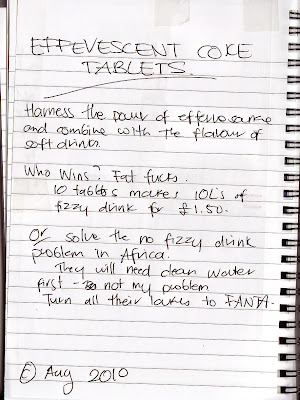 EFFEVESCENT COKE
TABLETS.
Harness the power of effervesance
and combine with the flavour of
soft drinks.
Who Wins? Fat fucks.
10 tablets makes 10L's of
fizzy drink for £1.50.
Or solve the no fizzy drink
problem in Africa.
They will need clean water
first - not my problem
Turn all their lakes to FANTA.
© Aug 2010